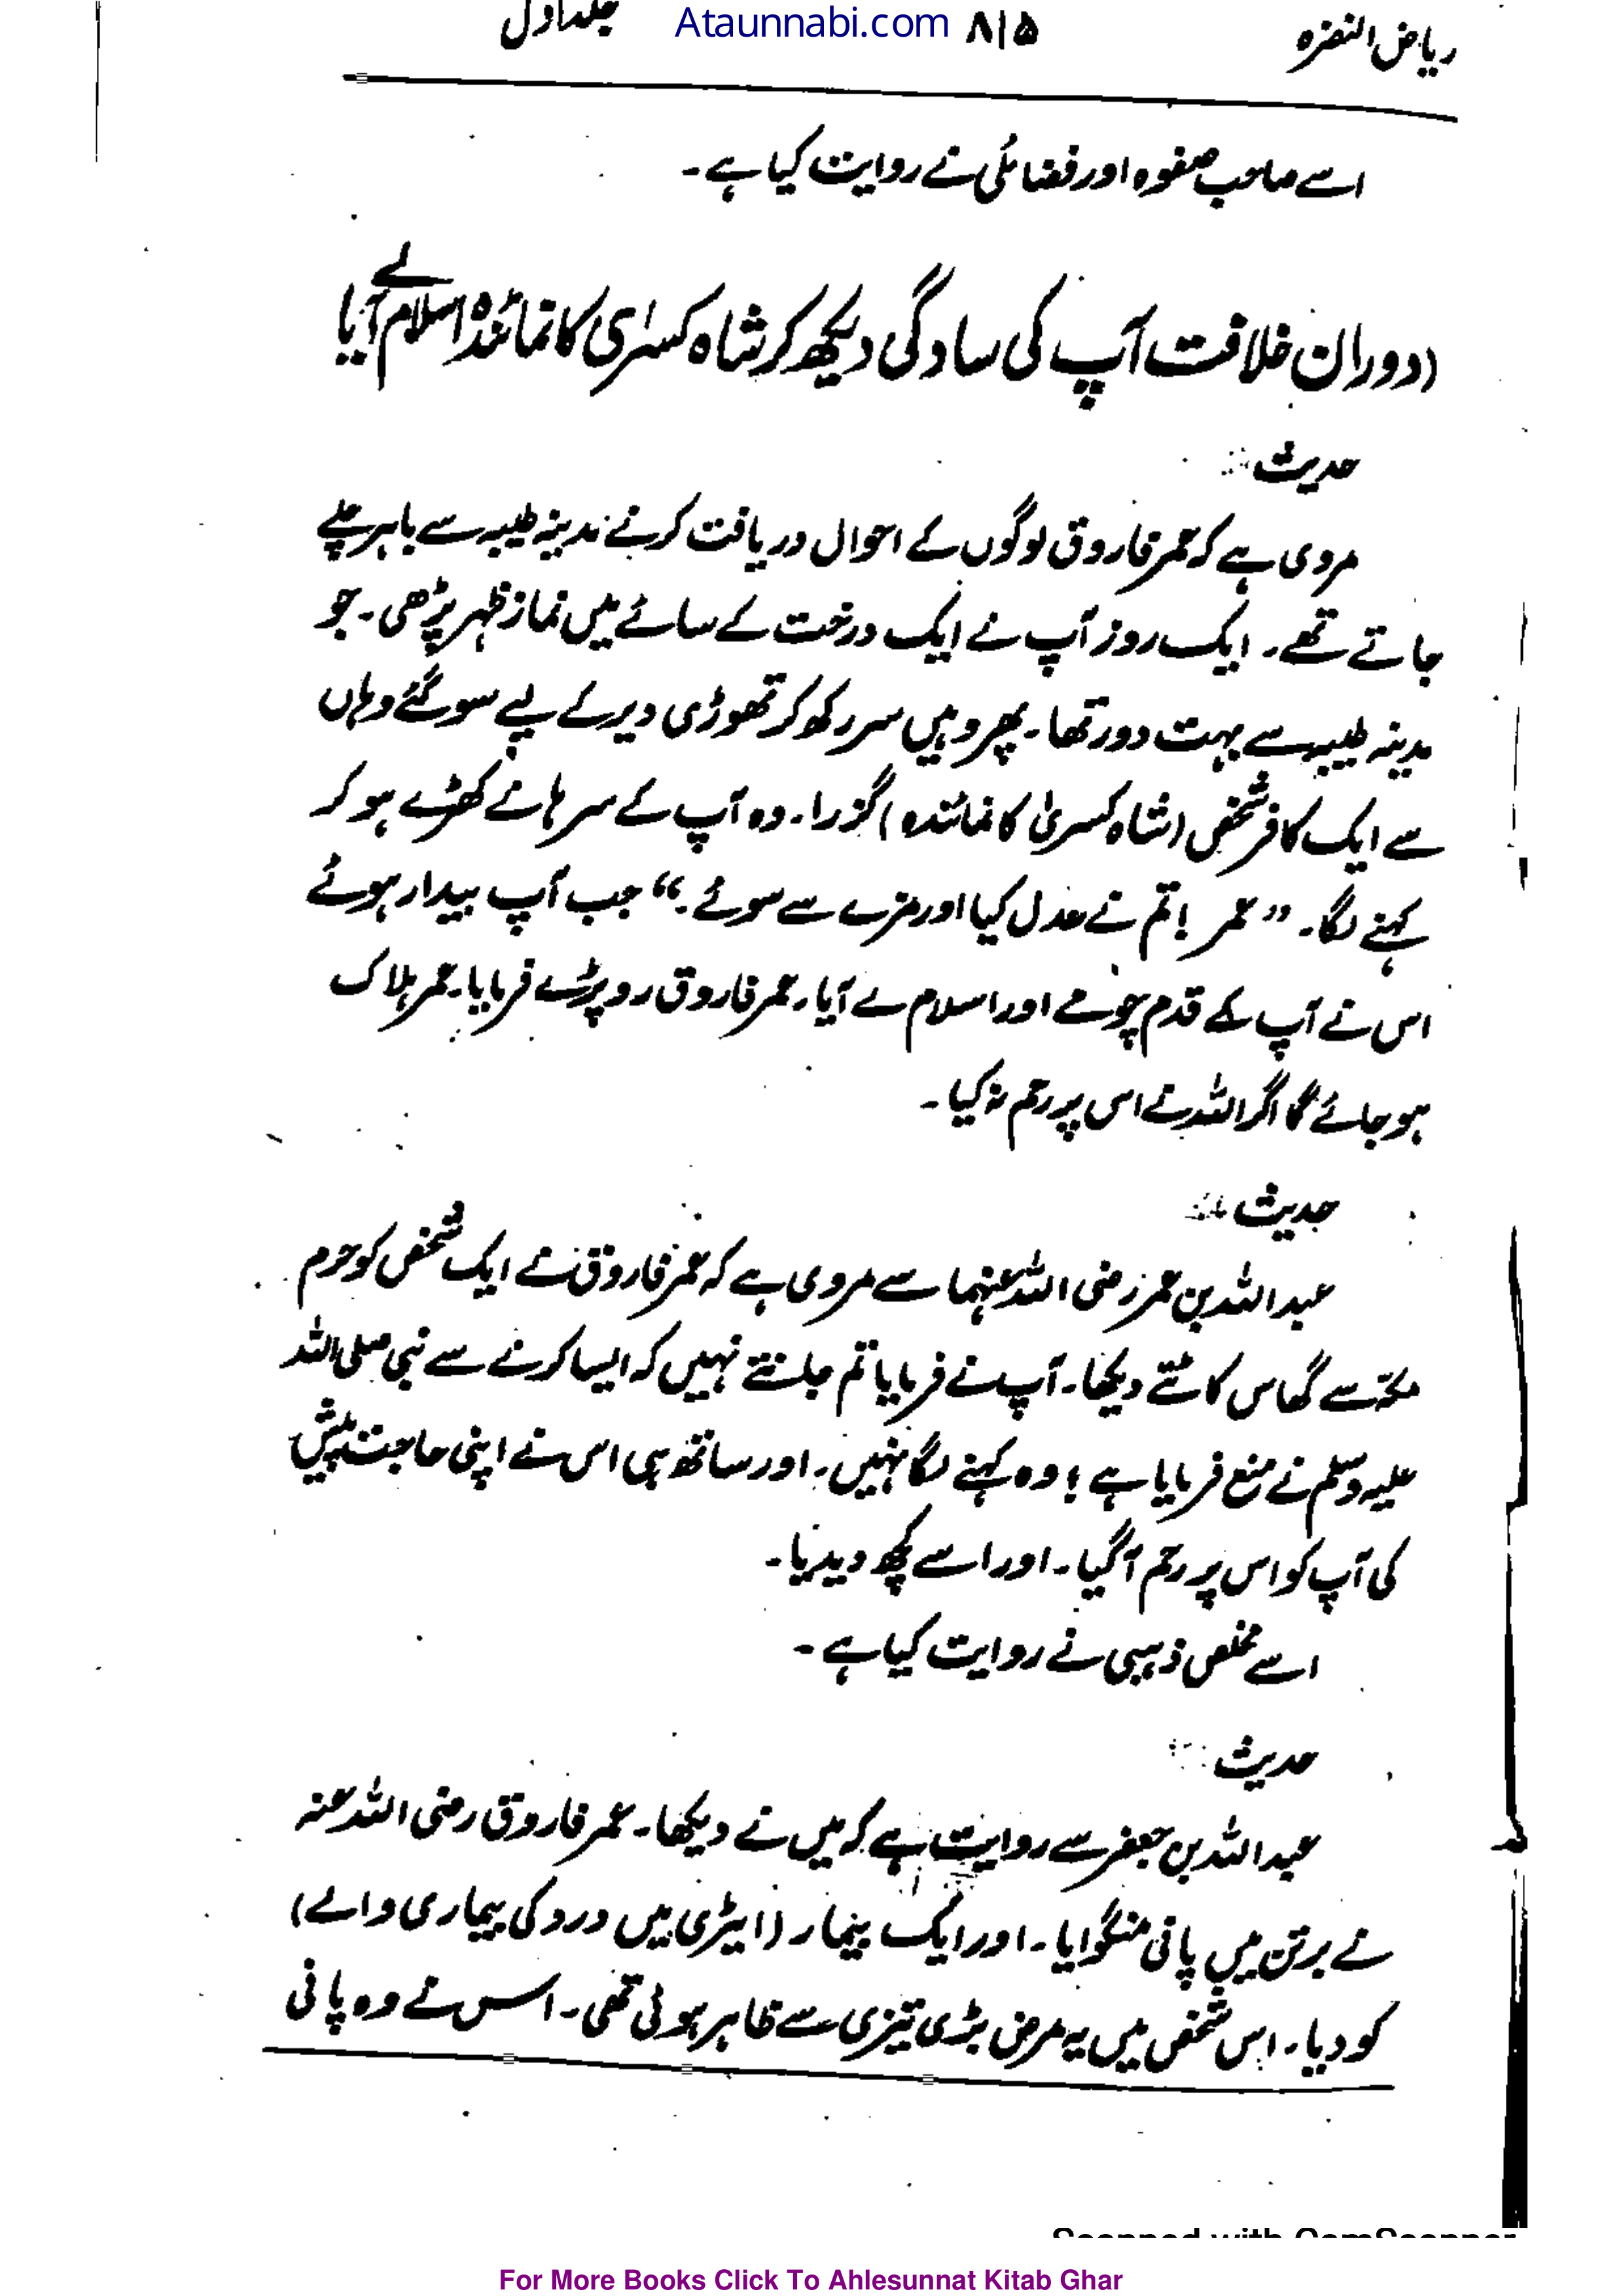 ریاض النضرہ ۸۱۵ Ataunnabi.com جلد اول
اسے صاحب صفوہ اور فضائلی نے روایت کیا ہے۔
(دوران خلافت آپ کی سادگی دیکھ کر شاہ کسرٰی کا نمائندہ اسلام لے آیا
حدیث
مروی ہے کہ عمر فاروق لوگوں کے احوال دریافت کرنے مدینہ طیبہ سے باہر چلے
جاتے تھے۔ ایک روز آپ نے ایک درخت کے سائے میں نماز ظہر پڑھی۔ جو
مدینہ طیبہ سے بہت دور تھا۔ پھر وہیں سر رکھ کر تھوڑی دیر کے لیے سو گئے وہاں
سے ایک کافر شخص (شاہ کسریٰ کا نمائندہ) گزرا۔ وہ آپ کے سرہانے کھڑے ہو کر
کہنے لگا۔ ”عمر! تم نے عدل کیا اور مزے سے سوئے۔“ جب آپ بیدار ہوئے
اس نے آپ کے قدم چومے اور اسلام لے آیا۔ عمر فاروق رو پڑے فرمایا۔ عمر ہلاک
ہو جائے گا اگر اللہ نے اس پر رحم نہ کیا۔
حدیث
عبداللہ بن عمر رضی اللہ عنہما سے مروی ہے کہ عمر فاروق نے ایک شخص کو حرم
مکہ سے گھاس کاٹتے دیکھا۔ آپ نے فرمایا تم جانتے نہیں کہ ایسا کرنے سے نبی صلی اللہ
علیہ وسلم نے منع فرمایا ہے؟ وہ کہنے لگا نہیں۔ اور ساتھ ہی اس نے اپنی حاجت پیش
کی آپ کو اس پر رحم آگیا۔ اور اسے کچھ دیدیا۔
اسے مخلص ذہبی نے روایت کیا ہے۔
حدیث
عبداللہ بن جعفر سے روایت ہے کہ میں نے دیکھا۔ عمر فاروق رضی اللہ عنہ
نے برتن میں پانی منگوایا۔ اور ایک بیمار (ایڑی میں درد کی بیماری والے)
کو دیا۔ اس شخص میں یہ مرض بڑی تیزی سے ظاہر ہوئی تھی۔ اس نے وہ پانی
Scanned with CamScanner
For More Books Click To Ahlesunnat Kitab Ghar